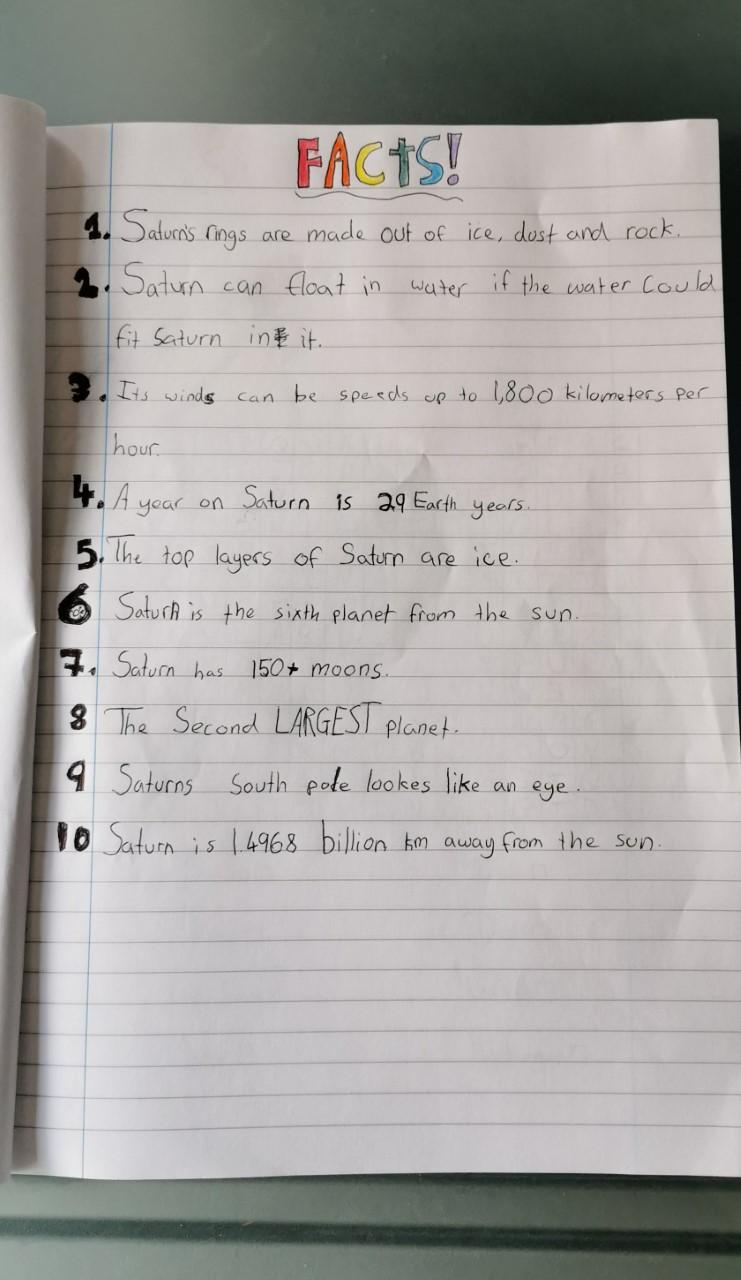 FACTS!
1. Saturn's rings are made out of ice, dust and rock.
2. Saturn can float in water if the water Could
fit Saturn in it.
3. Its winds can be speeds up to 1,800 kilometers per
hour.
4. A year on Saturn is 29 Earth years.
5. The top layers of Saturn are ice.
6 Saturn is the sixth planet from the sun.
7. Saturn has 150+ moons.
8 The Second LARGEST planet.
9 Saturns South pole lookes like an eye.
10 Saturn is 1.4968 billion km away from the sun.